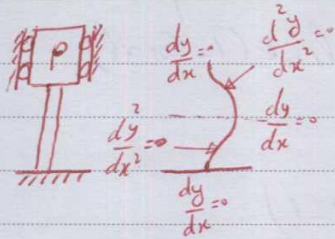 P
dy/dx=0
d²y/dx²=0
dy/dx=0
d²y/dx²=0
dy/dx=0